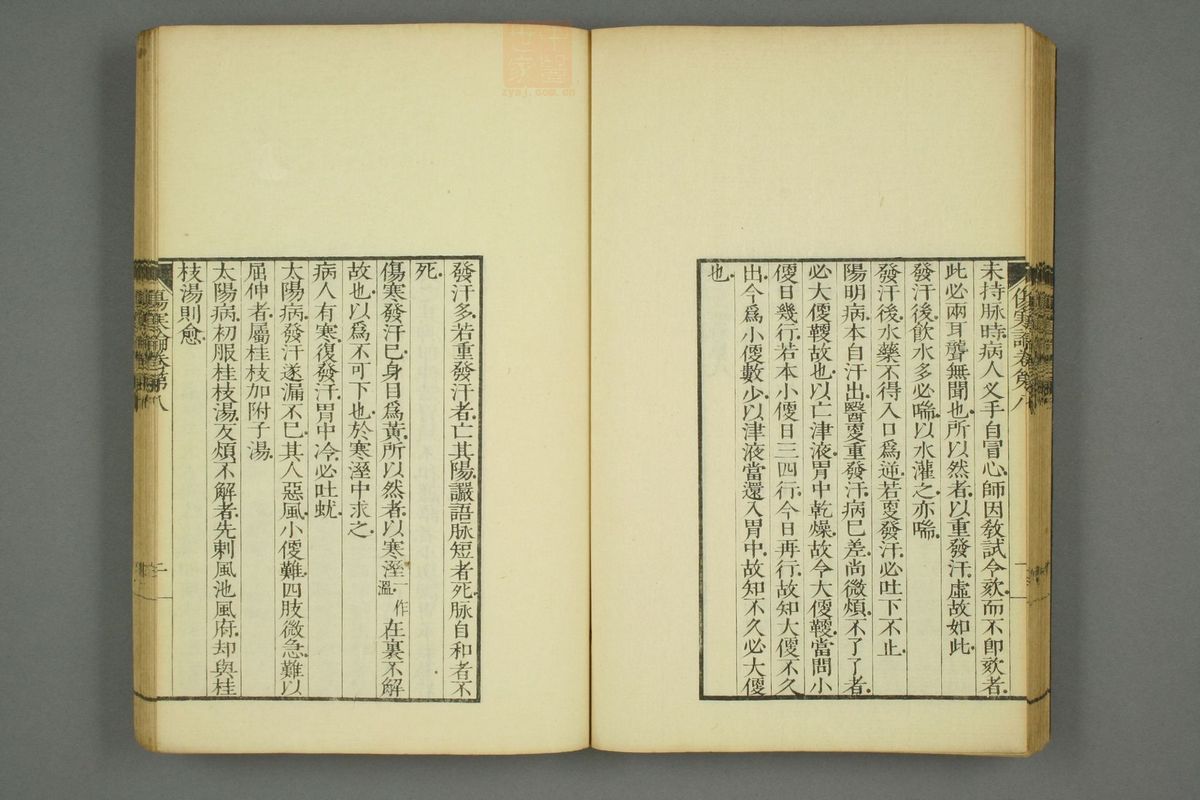 未持脉時病人叉手自冒心師因敎試令欬而不卽欬者
此必兩耳聾無聞也所以然者以重發汗虛故如此
發汗後飮水多必喘以水灌之亦喘
發汗後水藥不得入口爲逆若㪅發汗必吐下不止
陽明病本自汗出醫㪅重發汗病已差尚微煩不了了者
必大偄鞕故也以亡津液胃中乾燥故令大偄鞕當問小
偄日幾行若本小偄日三四行今日再行故知大偄不久
出今爲小偄數少以津液當還入胃中故知不久必大偄
也
發汗多若重發汗者亡其陽讝語脉短者死脉自和者不
死
傷寒發汗已身目爲黃所以然者以寒溼一作溫在裏不解
故也以爲不可下也於寒溼中求之
病人有寒復發汗胃中冷必吐蚘
太陽病發汗遂漏不已其人惡風小偄難四肢微急難以
屈伸者屬桂枝加附子湯
太陽病初服桂枝湯反煩不解者先刺風池風府却與桂
枝湯則愈
傷寒論卷第八
中醫世家
zysj.com.cn